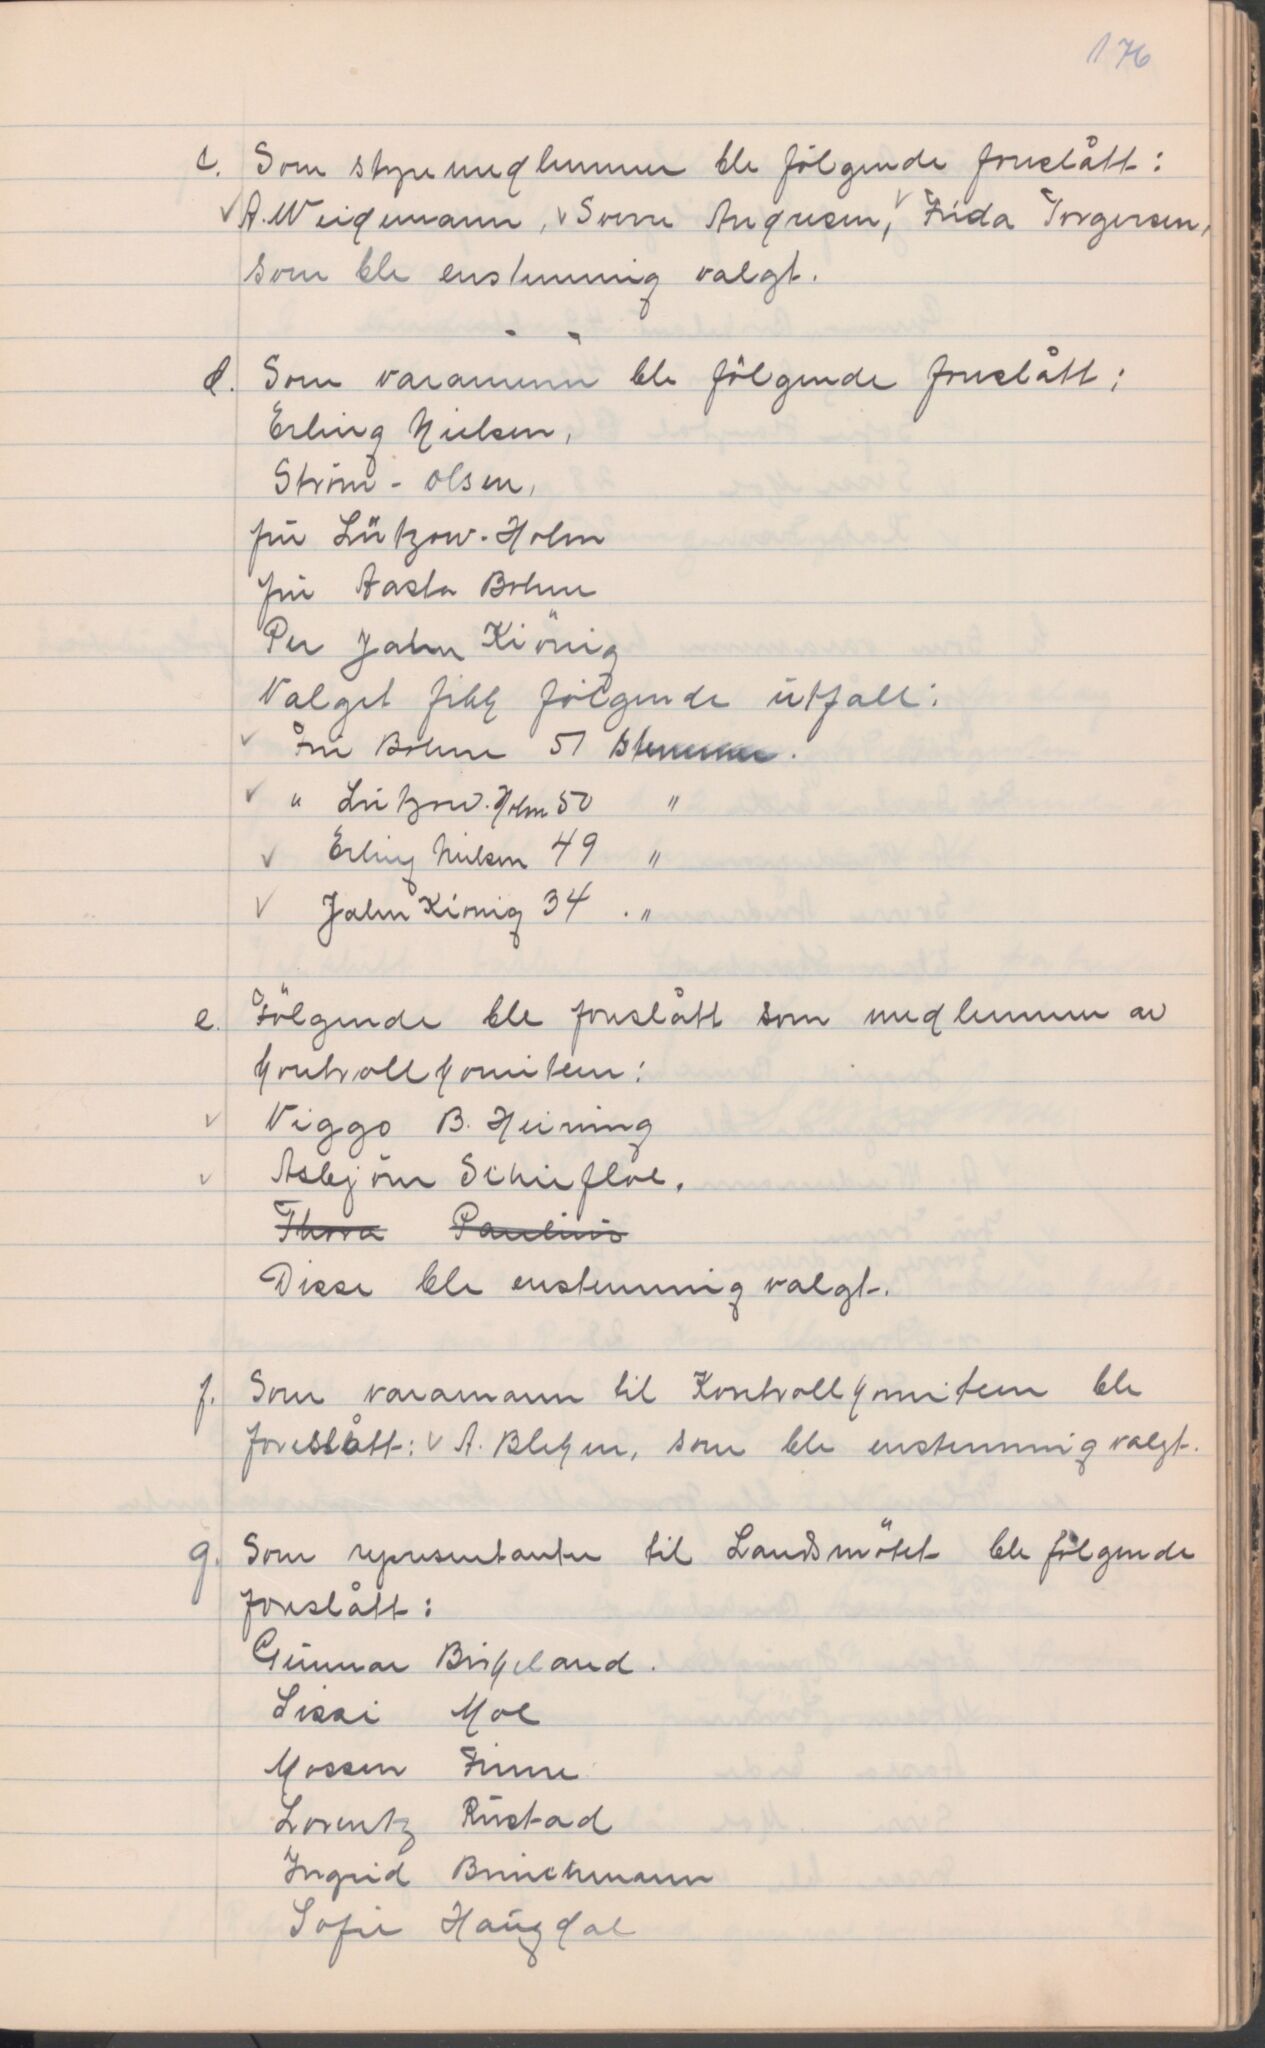 176
c. Som styremedlemmer ble følgende foreslått:
✓ A. Weidemann, ✓ Sverre Andresen, ✓ Frida Torgersen,
som ble enstemmig valgt.
d. Som varamenn ble følgende foreslått:
Erling Nielsen,
Strøm-Olsen,
fru Lützow-Holm
fru Aasta Bohne
Per Jahn Kiönig
Valget fikk følgende utfall:
✓ Fru Bohne 51 stemmer.
✓ " Lützow-Holm 50 "
✓ Erling Nielsen 49 "
✓ Jahn Kiönig 34 . "
e. Følgende ble foreslått som medlemmer av
kontrollkomiteen:
✓ Viggo B. Heining
✓ Asbjørn Schiefloe.
Thora Paulius
Disse ble enstemmig valgt.
f. Som varamann til Kontrollkomiteen ble
foreslått: ✓ A. Bleken, som ble enstemmig valgt.
g. Som representanter til Landsmøtet ble følgende
foreslått:
Gunnar Birkeland.
Sissi Moe
Mossen Finne
Lorentz Rustad
Ingrid Brinchmann
Sofie Haugdal